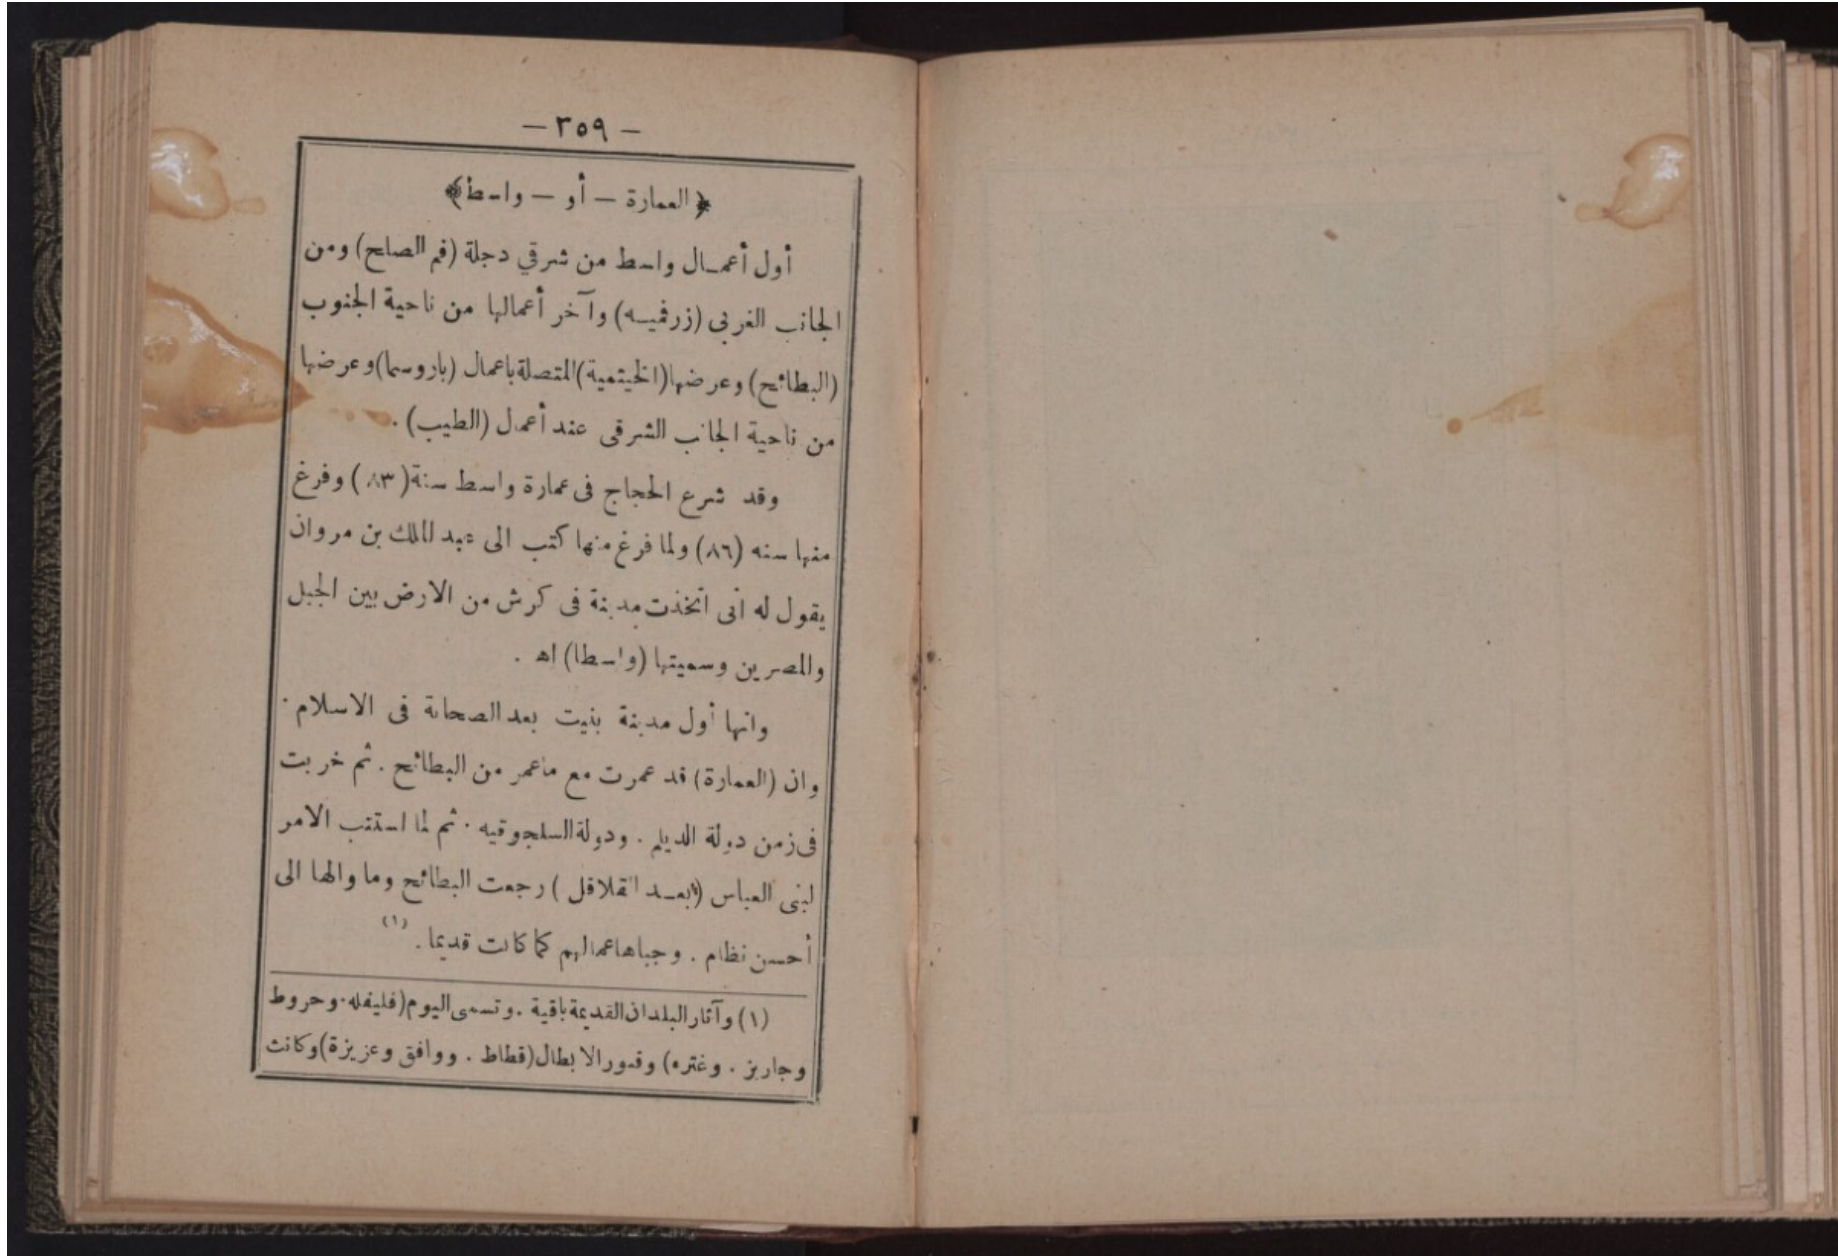 — ٣٥٩ —
﴿ العمارة — أو — واسط ﴾
أول أعمـال واسط من شرقي دجلة (فم الصلح) ومن
الجانب الغربى (زرفميـه) وآخر أعمالها من ناحية الجنوب
(البطائح) وعرضها (الخيثمية) المتصلة باعمال (باروسما) وعرضها
من ناحية الجانب الشرقى عند أعمال (الطيب) .
وقد شرع الحجاج فى عمارة واسط سنة (٨٣) وفرغ
منها سنه (٨٦) ولما فرغ منها كتب الى عبد الملك بن مروان
يقول له انى اتخذت مدينة فى كرش من الارض بين الجبل
والمصرين وسميتها (واسطا) اه .
وانها أول مدينة بنيت بعد الصحابة فى الاسلام .
وان (العمارة) قد عمرت مع ماعمر من البطائح . ثم خربت
فى زمن دولة الديلم . ودولة السلجوقيه . ثم لما استتب الامر
لبنى العباس (بعـد القلاقل) رجعت البطائح وما والها الى
أحسن نظام . وجباها عمالهم كما كانت قديما . (١)
(١) وآثار البلدان القديمة باقية . وتسمى اليوم (فليفله . وحروط
وجاريز . وغتره) وقبور الابطال (قطاط . ووافق وعزيزة) وكانت